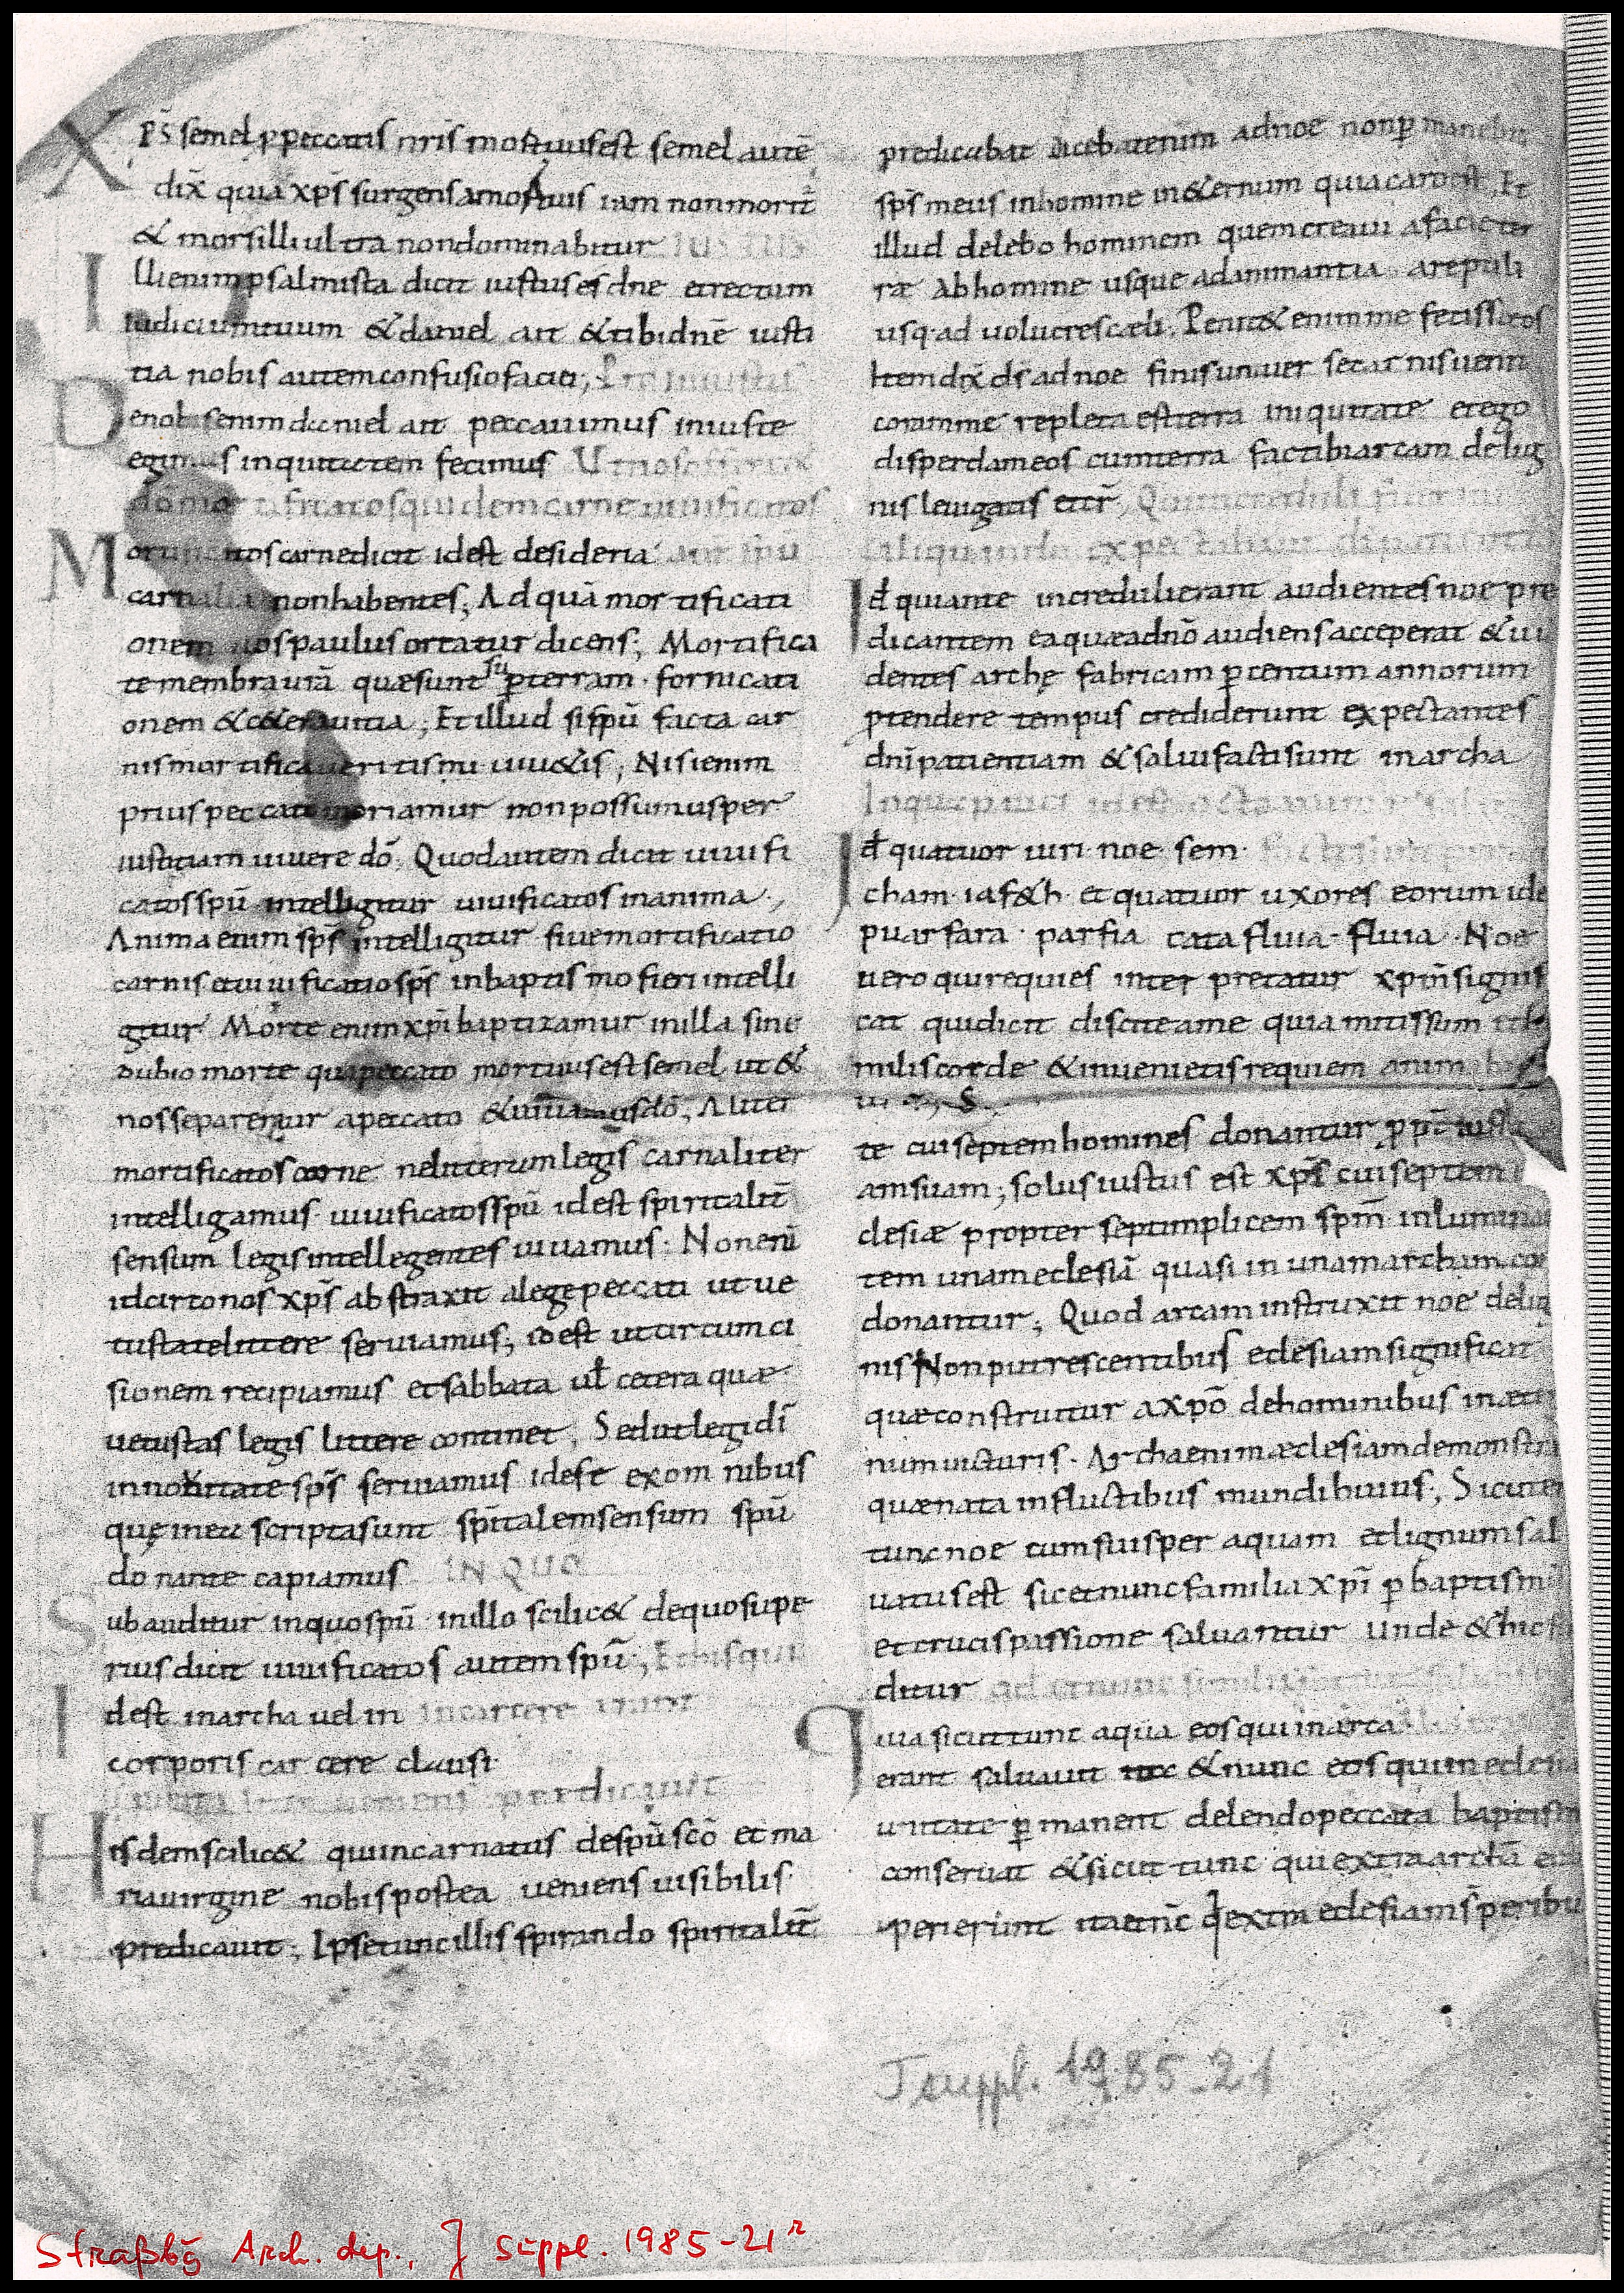 XPS̄ semel ꝓ peccatis nr̄is mortuus est semel autē
dix̄ quia xp̄s surgens amortuis iam non morit̄
& mors illi ultra non dominabitur IUSTUS
Illi enim psalmista dicit iustus es dne et rectum
iudicium tuum & daniel ait & tibi dnē iusti
tia nobis autem confusio faciei;
De nobis enim daniel ait peccauimus iniuste
egimus iniquitatem fecimus Ut nos offerret
dō mortificatos quidem carne uiuificatos
Mortificatos carne dicit id est desideria aut sp̄u
carnalia non habentes; Ad quā mortificati
onem nos paulus ortatur dicens; Mortifica
te membra ur̄a quæ sunt suꝑ terram · fornicati
onem & cetera uitia; Et illud si sp̄u facta car
nis mortificaueritis mi uiu&is; Nisi enim
prius peccato moriamur non possumus per
iustitiam uiuere dō; Quod autem dicit uiuifi
catos sp̄u intelligitur uiuificatos in anima;
Anima enim sp̄s intelligitur siue mortificatio
carnis et uiuificatio sp̄s in baptismo fieri intelli
gitur Morte enim xp̄i baptizamur in illa sine
dubio morte qua peccato mortuus est semel ut &
nos separemur apeccato & uiuamus dō; Aliter
mortificatos carne ne litterum legis carnaliter
intelligamus uiuificatos sp̄u id est spiritalit̄
sensum legis intellegentes uiuamus · Non enī
idcirco nos xp̄s abstraxit a lege peccati ut ue
tustate littere seruiamus; id est ut circumci
sionem recipiamus et sabbata ut̄ cetera quæ
uetustas legis littere continet; Sed ut legi dī
in nouitate sp̄s seruiamus id est ex omnibus
quę in ea scripta sunt sp̄italem sensum sp̄u
dō nante capiamus IN QUO
Subauditur in quo sp̄u · in illo scilic& de quo supe
rius dicit uiuificatos autem sp̄u; Et his qui
Id est in archa uel in in carcere erant
corporis carcere clausi
ueniens predicauit
Hisdem scilic& qui incarnatus de sp̄u scō et ma
ria uirgine nobis postea ueniens uisibilis
predicauit; Ipse tunc illis spirando spiritalit̄
predicabat dicebat enim ad noe non ꝑmanebit
sp̄s meus in homine in &ernum quia caro est, Et
illud delebo hominem quem creaui a facie ter
ræ Ab homine usque ad animantia a reptili
usq· ad uolucres cæli. Penit& enim me fecisse eos
Item dix̄ ds̄ ad noe finis uniuersæ carnis uenit
coram me repleta est terra iniquitate et ego
disperdam eos cum terra fac tibi arcam de lig
nis leuigatis et cet̄; Qui increduli fuerunt
aliquando expectabant di patientia
Id quia ante increduli erant audientes noe pre
dicantem ea quæ ad nō audiens acceperat & ui
dentes arche fabricam ꝑ centum annorum
ꝓtendere tempus crediderunt expectantes
dn̄i patientiam & salui facti sunt in archa
In qua pauci id est octo animæ
Id quatuor uiri · noe · sem · factæ sunt
cham · iaf&h · et quatuor uxores eorum ide
puarfara · parfia catafluia · fluia · Noe
uero qui requies interpretatur xpm̄ signifi
cat qui dicit discite a me quia mitis sum et hu
milis corde & inuenietis requiem animabus
te cui septem homines donantur ꝓpt̄ iusti
am suam; solus iustus est xp̄s cui septem
clesiæ propter septimplicem spm̄ inlumina
tem unam eclesiā quasi in unam archam con
donantur; Quod arcam instruxit noe de lig
nis Non putrescentibus eclesiam significat
quæ construitur a xpō de hominibus in æter
num uicturis · Archa enim æclesiam demonstra
quæ nata in fluctibus mundi huius; Sicut
tunc noe cum suis per aquam et lignum sal
uatus est sic et nunc familia xp̄i ꝑ baptismū
et crucis passione saluantur Unde & hic
ditur
Quia sicut tunc aqua eos qui in arca
erant saluauit & nunc eos qui in eclesiæ
unitate ꝑmanent delendo peccata baptism
conseruat & sicut tunc qui extra archā
perierunt ita et nc̄ q̄ extra eclesiam s̄ peribu
J suppl. 1985-21
Straßbg Arch. dep., J suppl. 1985-21r